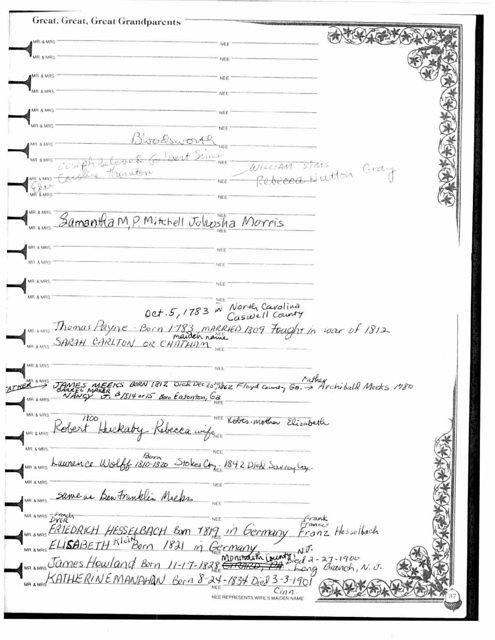 Great, Great, Great Grandparents
MR. & MRS. NEE
MR. & MRS. NEE
MR. & MRS. NEE
MR. & MRS. NEE
MR. & MRS. NEE
MR. & MRS. NEE
Bloodsworth
MR. & MRS. NEE
Joseph Gilbert Sims WILLIAM SIMS
Caroline Thornton Rebecca Hutton Gray
MR. & MRS. NEE
Samantha M.P. Mitchell Morris
MR. & MRS. NEE
MR. & MRS. NEE
MR. & MRS. NEE
MR. & MRS. NEE
Oct. 5, 1783 in North Carolina
Caswell County
Thomas Payne - Born 1783, MARRIED 1809 Fought in war of 1812
maiden name
SARAH CARLTON OR CHATHAM
MR. & MRS. NEE
Father
FATHER → JAMES MEEKS BORN 1812 Died Dec 20, 1862 Floyd County, Ga. → Archibald Meeks 1780
BARREL MAKER
NANCY J. B 1814 or 15 Born Eatonton, Ga
1800
Robert Huckaby - Rebecca wife Robts. mother Elizabeth
MR. & MRS. NEE
Born
Laurence Wolff 1810-1820 Stokes Cty. 1842 Died Surry Cty.
MR. & MRS. NEE
same as Ben Franklin Meeks
MR. & MRS. NEE
Frank
FRIEDRICH HESSELBACH Born 1819 in Germany Franz Hesselbach
ELISABETH Klein Born 1821 in Germany
Monmouth County, N.J.
James Howland Born 11-17-1828 Died 2-27-1900
Long Branch, N.J.
KATHERINE MANAHAN Born 8-24-1834 Died 3-3-1901
Cinn.
NEE REPRESENTS WIFE'S MAIDEN NAME
37